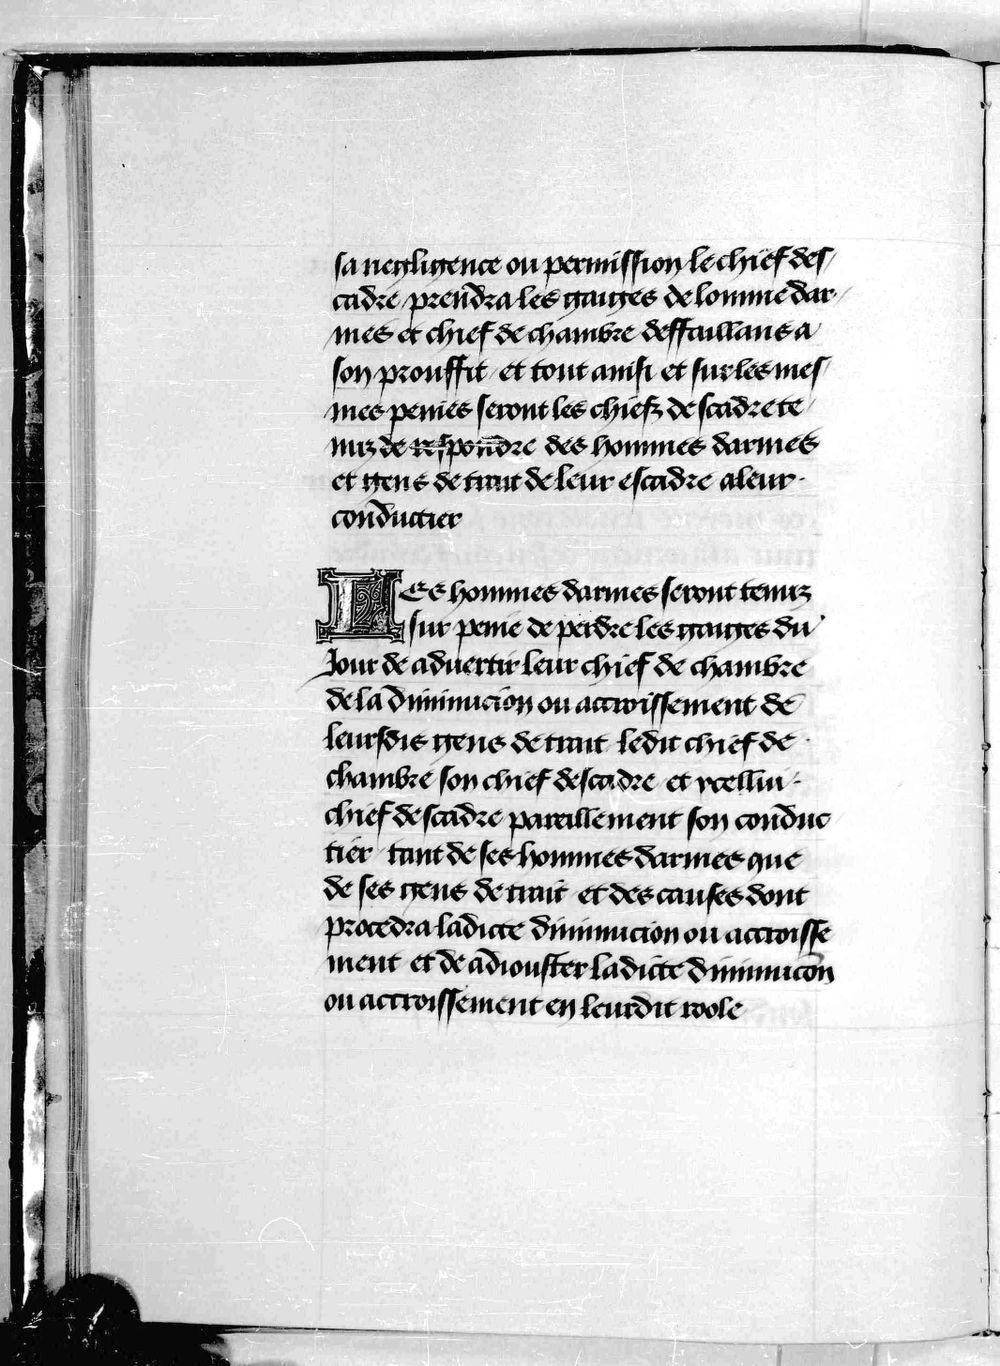 sa negligence ou permission le chief des/
cadre / prendra les gaiges de lomme dar/
mes et chief de chambre deffaillans a
son prouffit / et tout ainsi et sur les mes/
mes peines seront les chiefz descadre te/
nuz de respondre des hommes darmes
et gens de trait de leur escadre a leur
conductier
Les hommes darmes seront tenuz
sur peine de perdre les gaiges du
Jour de aduertir leur chief de chambre
de la diminucion ou accroissement de
leursdis gens de trait / ledit chief de
chambre son chief descadre / et ycellui /
chief descadre pareillement son conduc
tier / tant de ses hommes darmes que
de ses gens de trait / et des causes dont
procedra ladicte diminucion ou accroisse
ment / et de adiouster ladicte diminucon
ou accroissement en leurdit roole